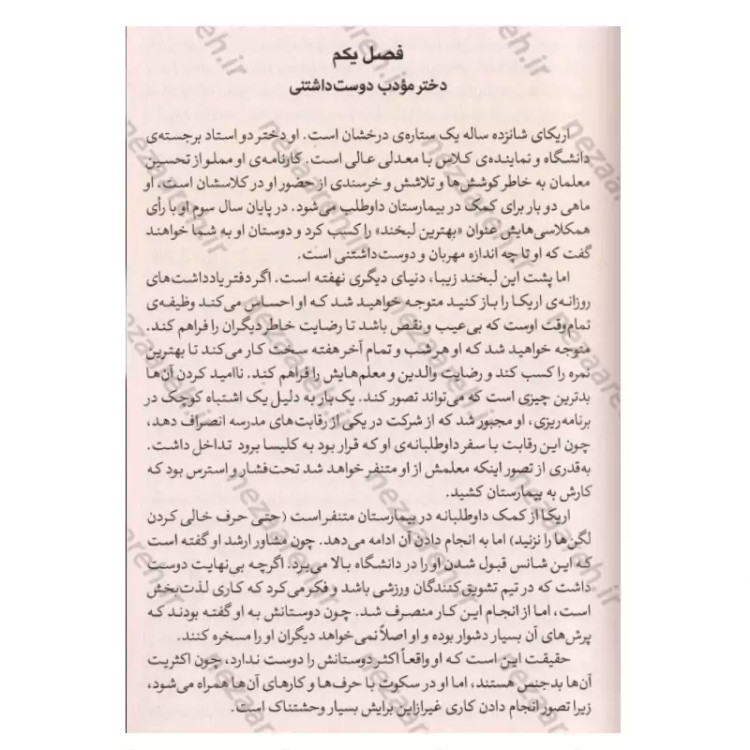 فصل یکم
دختر مؤدب دوست‌داشتنی
اریکای شانزده ساله یک ستاره‌ی درخشان است. او دختر دو استاد برجسته‌ی
دانشگاه و نماینده‌ی کلاس با معدلی عالی است. کارنامه‌ی او مملو از تحسین
معلمان به خاطر کوشش‌ها و تلاش و خرسندی از حضور او در کلاسشان است. او
ماهی دو بار برای کمک در بیمارستان داوطلب می‌شود. در پایان سال سوم او با رأی
همکلاسی‌هایش عنوان «بهترین لبخند» را کسب کرد و دوستان او به شما خواهند
گفت که او تا چه اندازه مهربان و دوست‌داشتنی است.
اما پشت این لبخند زیبا، دنیای دیگری نهفته است. اگر دفتر یادداشت‌های
روزانه‌ی اریکا را باز کنید متوجه خواهید شد که او احساس می‌کند وظیفه‌ی
تمام‌وقت اوست که بی‌عیب و نقص باشد تا رضایت خاطر دیگران را فراهم کند.
متوجه خواهید شد که او هر شب و تمام آخر هفته سخت کار می‌کند تا بهترین
نمره را کسب کند و رضایت والدین و معلم‌هایش را فراهم کند. ناامید کردن آن‌ها
بدترین چیزی است که می‌تواند تصور کند. یک‌بار به دلیل یک اشتباه کوچک در
برنامه‌ریزی، او مجبور شد که از شرکت در یکی از رقابت‌های مدرسه انصراف دهد،
چون این رقابت با سفر داوطلبانه‌ی او که قرار بود به کلیسا برود تداخل داشت.
به‌قدری از تصور اینکه معلمش از او متنفر خواهد شد تحت‌فشار و استرس بود که
کارش به بیمارستان کشید.
اریکا از کمک داوطلبانه در بیمارستان متنفر است (حتی حرف خالی کردن
لگن‌ها را نزنید) اما به انجام دادن آن ادامه می‌دهد. چون مشاور ارشد او گفته است
که این شانس قبول شدن او را در دانشگاه بالا می‌برد. اگرچه بی‌نهایت دوست
داشت که در تیم تشویق‌کنندگان ورزشی باشد و فکر می‌کرد که کاری لذت‌بخش
است، اما از انجام این کار منصرف شد. چون دوستانش به او گفته بودند که
پرش‌های آن بسیار دشوار بوده و او اصلاً نمی‌خواهد دیگران او را مسخره کنند.
حقیقت این است که او واقعاً اکثر دوستانش را دوست ندارد، چون اکثریت
آن‌ها بدجنس هستند، اما او در سکوت با حرف‌ها و کارهای آن‌ها همراه می‌شود،
زیرا تصور انجام دادن کاری غیر از این برایش بسیار وحشتناک است.
nezaareh.ir